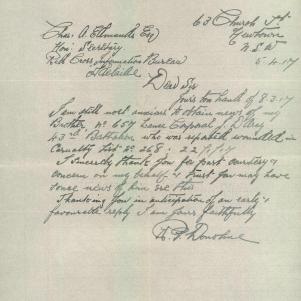 63 Church St
Newtown
N.S.W
5.4.17
Chas. A. Edmunds Esq
Hon. Secretary
Red Cross Information Bureau
Adelaide
Dear Sir
Yours to hand of 8-3-17
I am still most anxious to obtain news of my
Brother No 657 Lance Corporal
43rd Battalion who was reported wounded in
Casualty List No 268: 22
I sincerely thank you for past courtesy &
concern on my behalf & trust you may have
some news of him ere this
Thanking you in anticipation of an early &
favourable reply I am Yours faithfully
Donohue